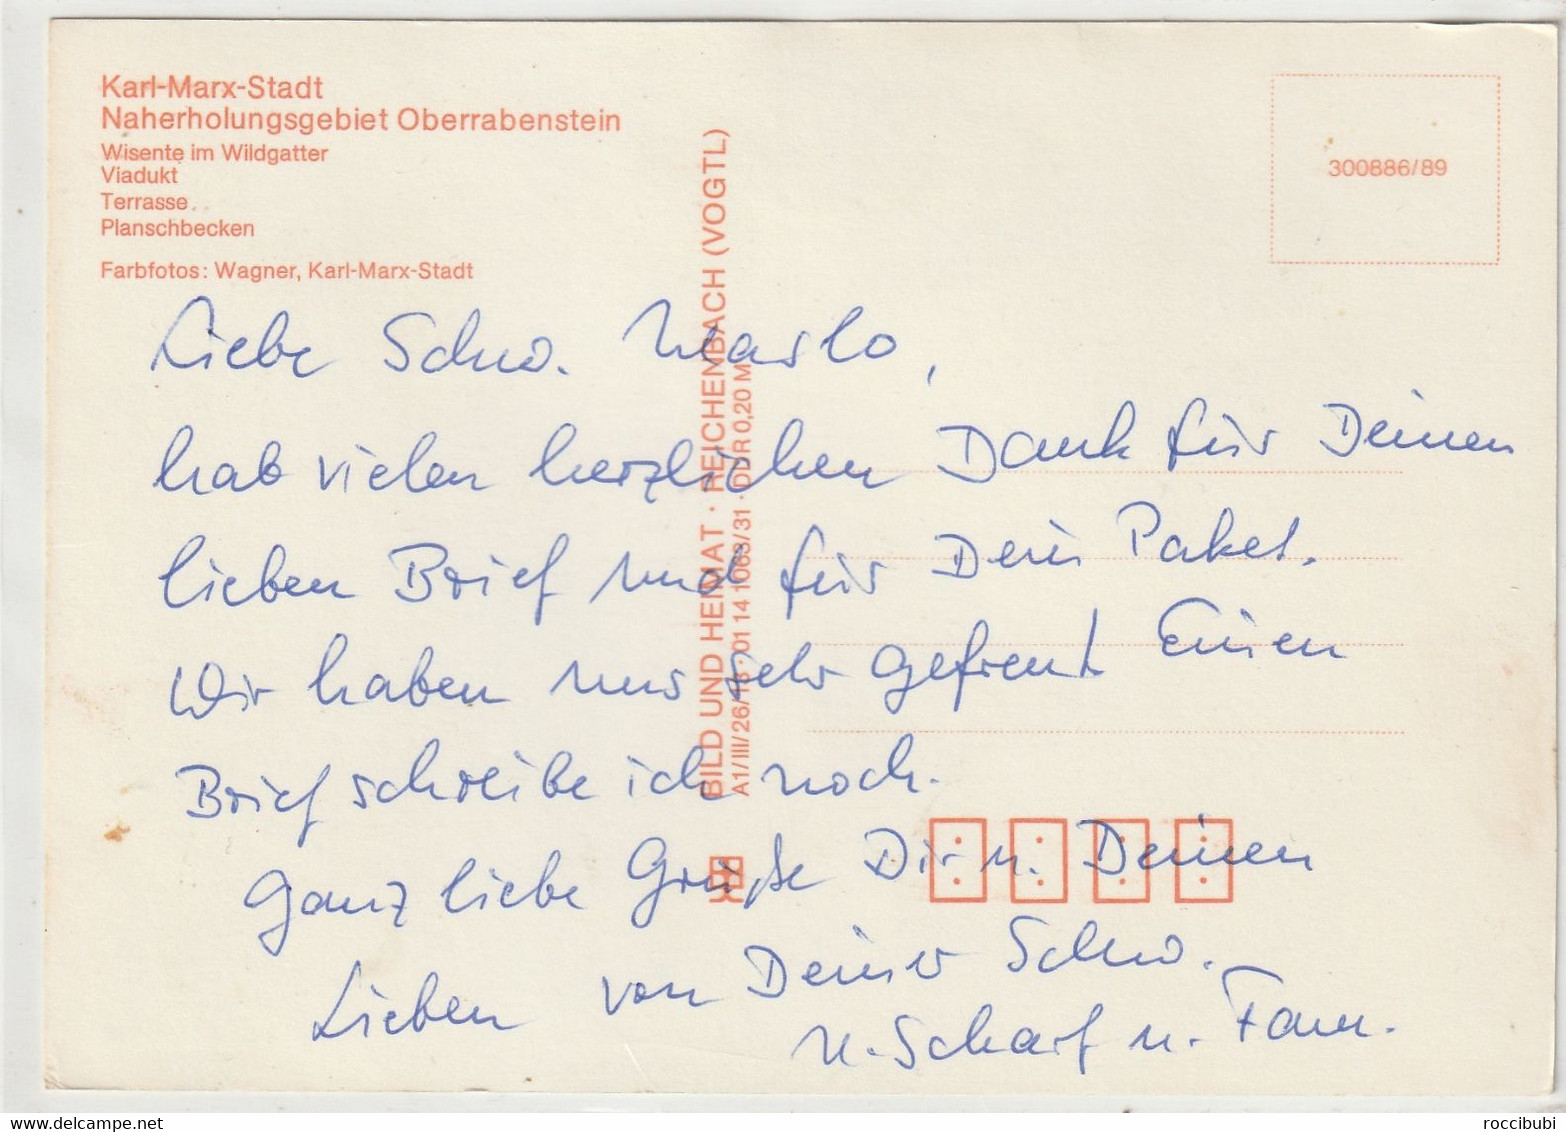 Karl-Marx-Stadt
Naherholungsgebiet Oberrabenstein
Wisente im Wildgatter
Viadukt
Terrasse
Planschbecken
Farbfotos: Wagner, Karl-Marx-Stadt
300886/89
BILD UND HEIMAT · REICHENBACH (VOGTL)
A1/III/26/13 01 14 1063/31 · DDR 0,20 M
Liebe Schw. Marlo,
hab vielen herzlichen Dank für Deinen
lieben Brief und für Dein Paket.
Wir haben uns sehr gefreut Einen
Brief schreibe ich noch.
Ganz liebe Grüße Dir u. Deinen
Lieben von Deiner Schw.
U. Scharf u. Fam.
delcampe.net
roccibubi